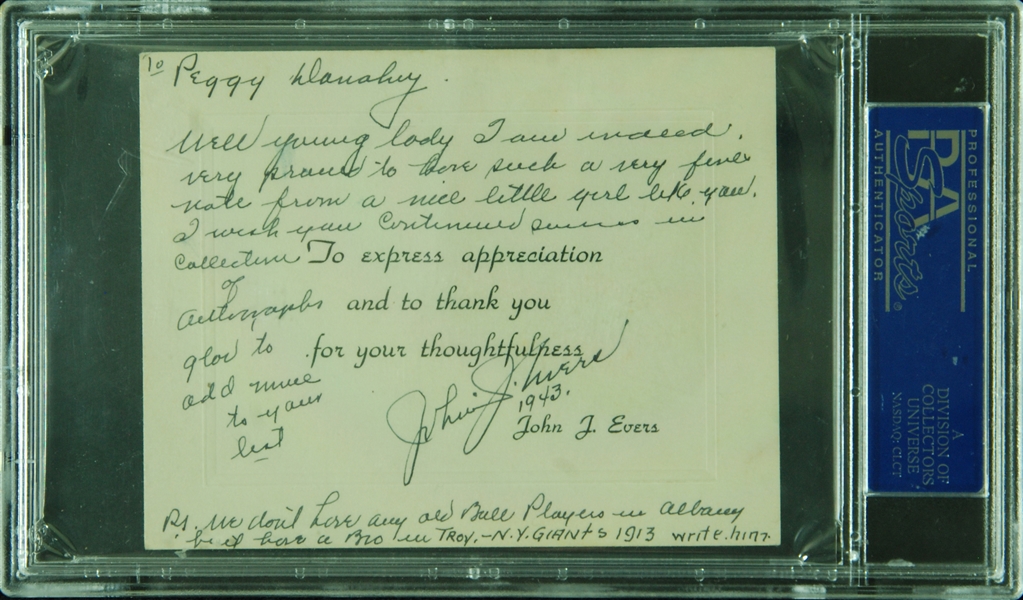 To Peggy Danahy.
Well young lady I am indeed.
very proud to have such a very fine
note from a nice little girl like you.
I wish you continued success in
collection To express appreciation
of
autographs and to thank you
glad to for your thoughtfulness
add mine
to your
list
John J. Evers
1943.
John J. Evers
Ps. We don't have any old Ball Players in Albany
but have a Bro in TROY.-N.Y. GIANTS 1913 write him.
PROFESSIONAL
PSA
Sports
AUTHENTICATOR
A
DIVISION OF
COLLECTORS
UNIVERSE
NASDAQ: CLCT